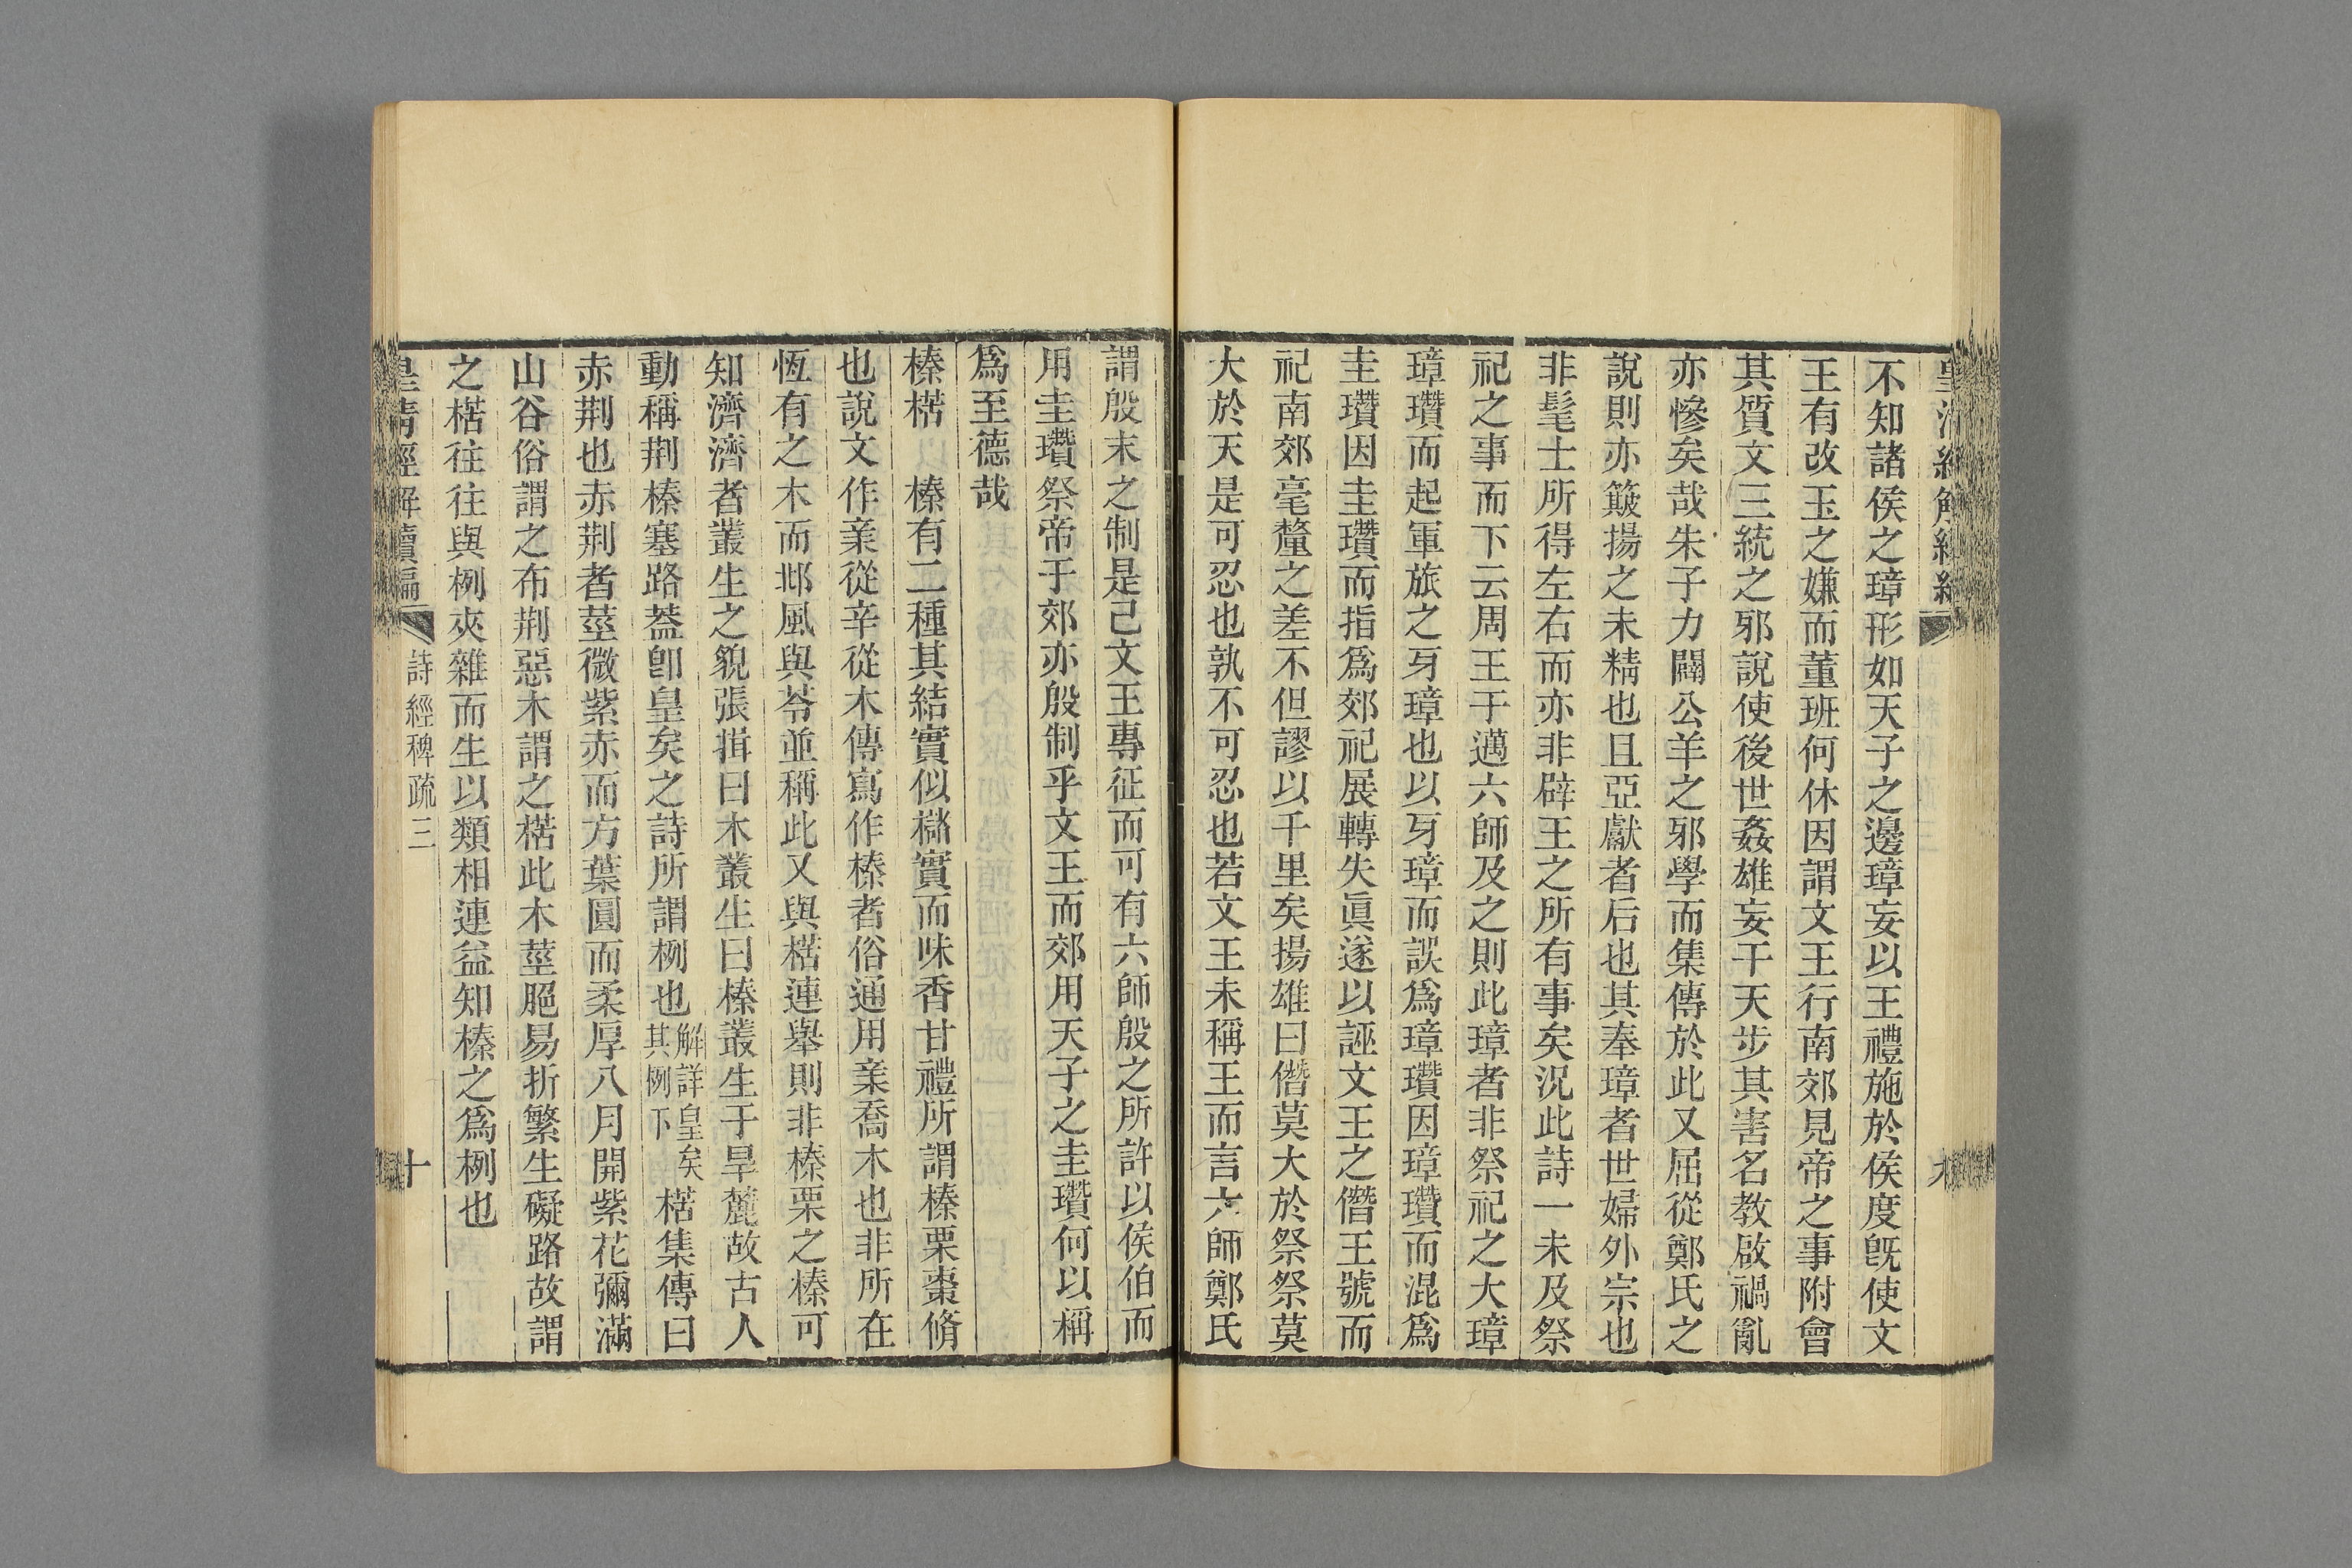 不知諸侯之璋形如天子之邊璋妄以王禮施於侯度旣使文
王有改玉之嫌而董班何休因謂文王行南郊見帝之事附會
其質文三統之邪說使後世姦雄妄干天步其害名教啟禍亂
亦慘矣哉朱子力闢公羊之邪學而集傳於此又屈從鄭氏之
說則亦簸揚之未精也且亞獻者后也其奉璋者世婦外宗也
非髦士所得左右而亦非辟王之所有事矣況此詩一未及祭
祀之事而下云周王于邁六師及之則此璋者非祭祀之大璋
璋瓚而起軍旅之牙璋也以牙璋而誤爲璋瓚因璋瓚而混爲
圭瓚因圭瓚而指爲郊祀展轉失眞遂以誣文王之僭王號而
祀南郊毫釐之差不但謬以千里矣揚雄曰僭莫大於祭祭莫
大於天是可忍也孰不可忍也若文王未稱王而言六師鄭氏
謂殷末之制是已文王專征而可有六師殷之所許以侯伯而
用圭瓚祭帝于郊亦殷制乎文王而郊用天子之圭瓚何以稱
爲至德哉
榛楛　榛有二種其結實似櫧實而味香甘禮所謂榛栗棗脩
也說文作亲從辛從木傳寫作榛者俗通用亲喬木也非所在
恆有之木而邶風與苓並稱此又與楛連舉則非榛栗之榛可
知濟濟者叢生之貌張揖曰木叢生曰榛叢生于旱麓故古人
動稱荆榛塞路葢卽皇矣之詩所謂栵也解詳皇矣其例下楛集傳曰
赤荆也赤荆者莖微紫赤而方葉圓而柔厚八月開紫花彌滿
山谷俗謂之布荆惡木謂之楛此木莖脃易折繁生礙路故謂
之楛往往與栵夾雜而生以類相連益知榛之爲栵也
皇淸經解續編
詩經稗疏三
十